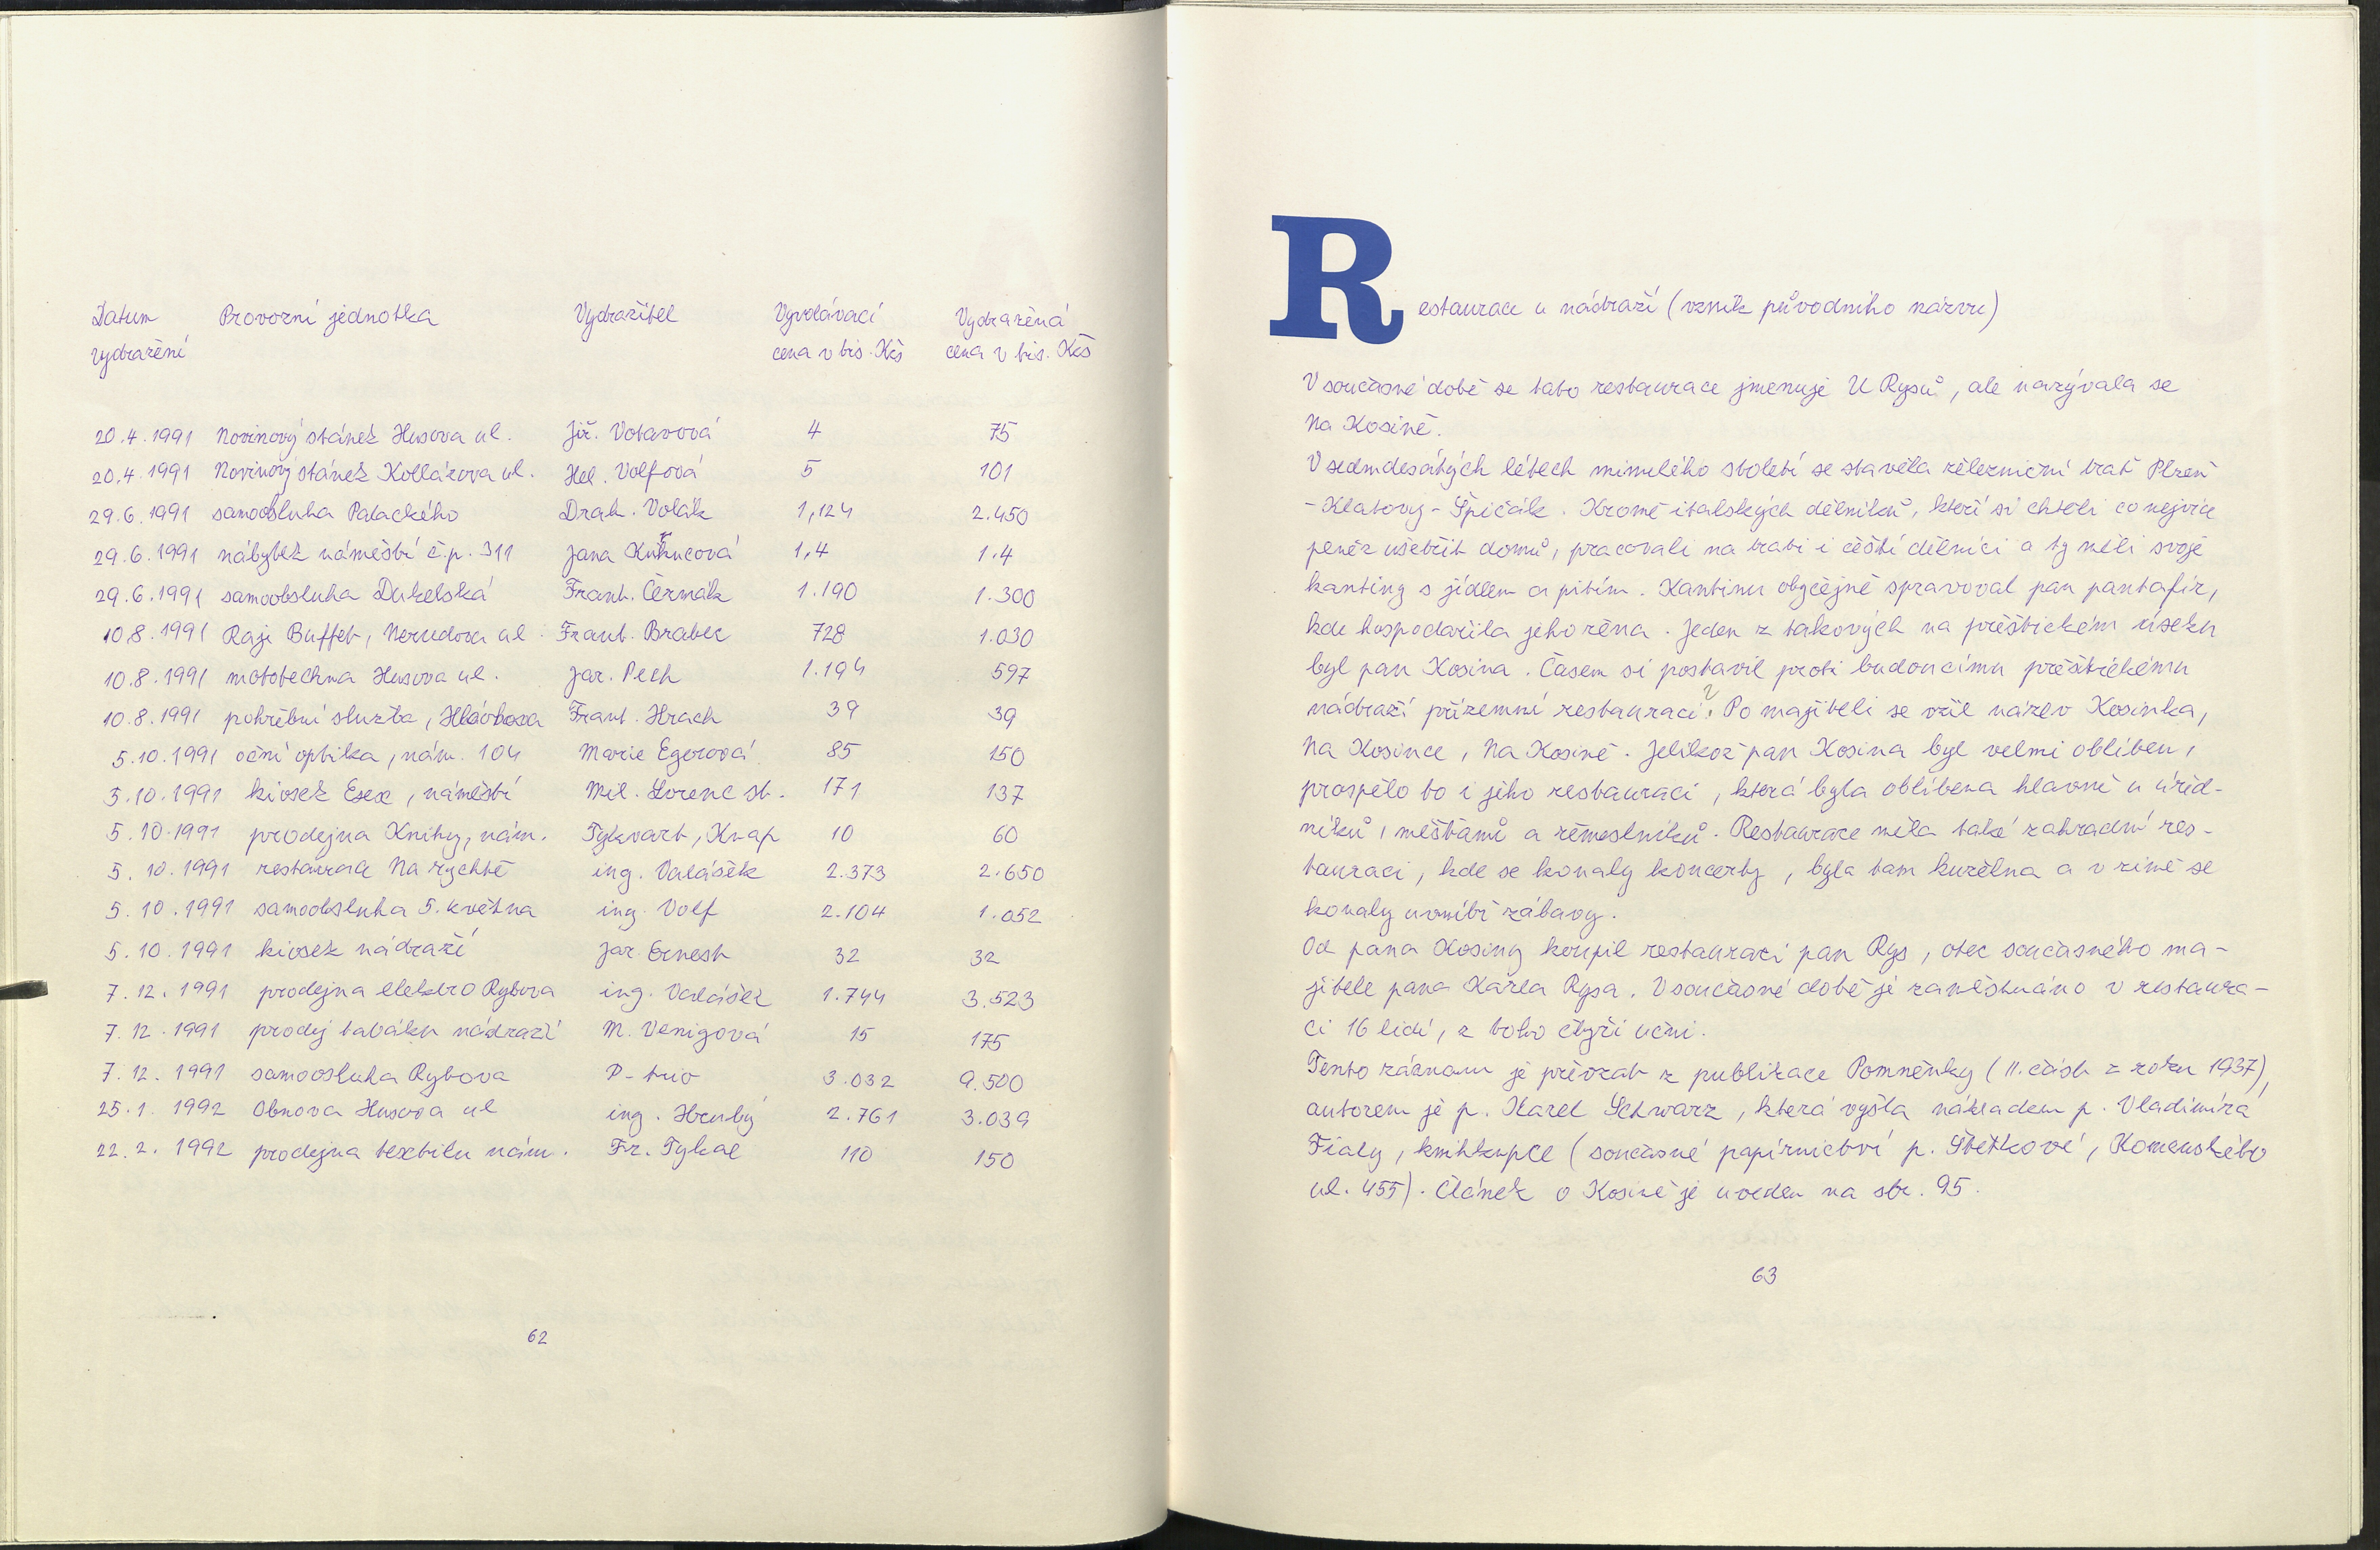 Datum Provozní jednotka Vydražitel Vyvolávací Vydražená
vydražení cena v tis. Kčs cena v tis. Kčs
20.4.1991 Novinový stánek Husova ul. Jiř. Votavová 4 75
20.4.1991 Novinový stánek Kollárova ul. Hel. Volfová 5 101
29.6.1991 samoobsluha Palackého Drah. Volák 1,124 2.450
29.6.1991 nábytek náměstí č.p. 311 Jana 1,4 1.4
29.6.1991 samoobsluha Dukelská Frant. Čermák 1.190 1.300
10.8.1991 Raji Buffet, Nerudova ul. Frant. Brabec 728 1.030
10.8.1991 mototechna Husova ul. Jar. Pech 1.194 597
10.8.1991 pohřební služba, Hlávkova Frant. Hrach 39 39
5.10.1991 oční optika, nám. 104 Marie Egerová 85 150
5.10.1991 kiosek Esex, náměstí Mil. Lorenc st. 171 137
5.10.1991 prodejna Knihy, nám. Tykvart, Knap 10 60
5.10.1991 restaurace Na rychtě ing. Valášek 2.373 2.650
5.10.1991 samoobsluha 5. května ing. Volf 2.104 1.052
5.10.1991 kiosek nádraží Jar. Ernest 32 32
7.12.1991 prodejna elektro Rybova ing. Valášek 1.744 3.523
7.12.1991 prodej tabáku nádraží M. Venigová 15 175
7.12.1991 samoosluha Rybova P-tuo 3.032 9.500
25.1.1992 Obnova Husova ul ing. Hrubý 2.761 3.039
22.2.1992 prodejna textilu nám. Fr. Tykal 110 150
62
Restaurace u nádraží (vznik původního názvu)
V současné době se tato restaurace jmenuje U Rysů, ale nazývala se
Na Kosině.
V sedmdesátých létech minulého století se stavěla železniční trať Plzeň
-Klatovy-Špičák. Kromě italských dělníků, kteří si chtěli co nejvíce
peněz ušetřit domů, pracovali na trati i čeští dělníci a ty měli svoje
kantiny s jídlem a pitím. Kantinu obyčejně spravoval pan pantafír,
kde hospodařila jeho žena. Jeden z takových na přeštickém úseku
byl pan Kosina. Časem si postavil proti budoucímu přeštickému
nádraží přízemní restauraci. Po majiteli se vžil název Kosinka,
Na Kosince, Na Kosině. Jelikož pan Kosina byl velmi obliben,
prospělo to i jeho restauraci, která byla oblíbena hlavně u úřed-
níků, měšťanů a řemeslníků. Restaurace měla také zahradní res-
tauraci, kde se konaly koncerty, byla tam kuželna a v zimě se
konaly uvnitř zábavy.
Od pana Kosiny koupil restauraci pan Rys, otec současného ma-
jitele pana Karla Rysa. V současné době je zaměstnáno v restaura-
ci 16 lidí, z toho čtyři učni.
Tento záznam je převzat z publikace Pomněnky (II. část z roku 1937),
autorem je p. Karel Schwarz, která vyšla nákladem p. Vladimíra
Fialy, knihkupce (současné papírnictví p. Štětkové, Komenského
ul. 455). Článek o Kosině je uveden na str. 95.
63